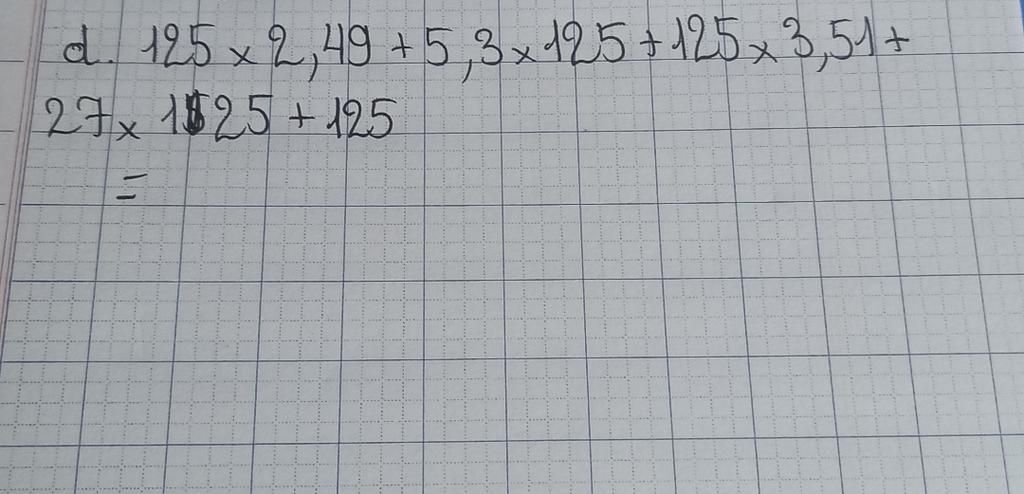 d. 125 x 2,49 + 5,3 x 125 + 125 x 3,51 +
27 x 125 + 125
=